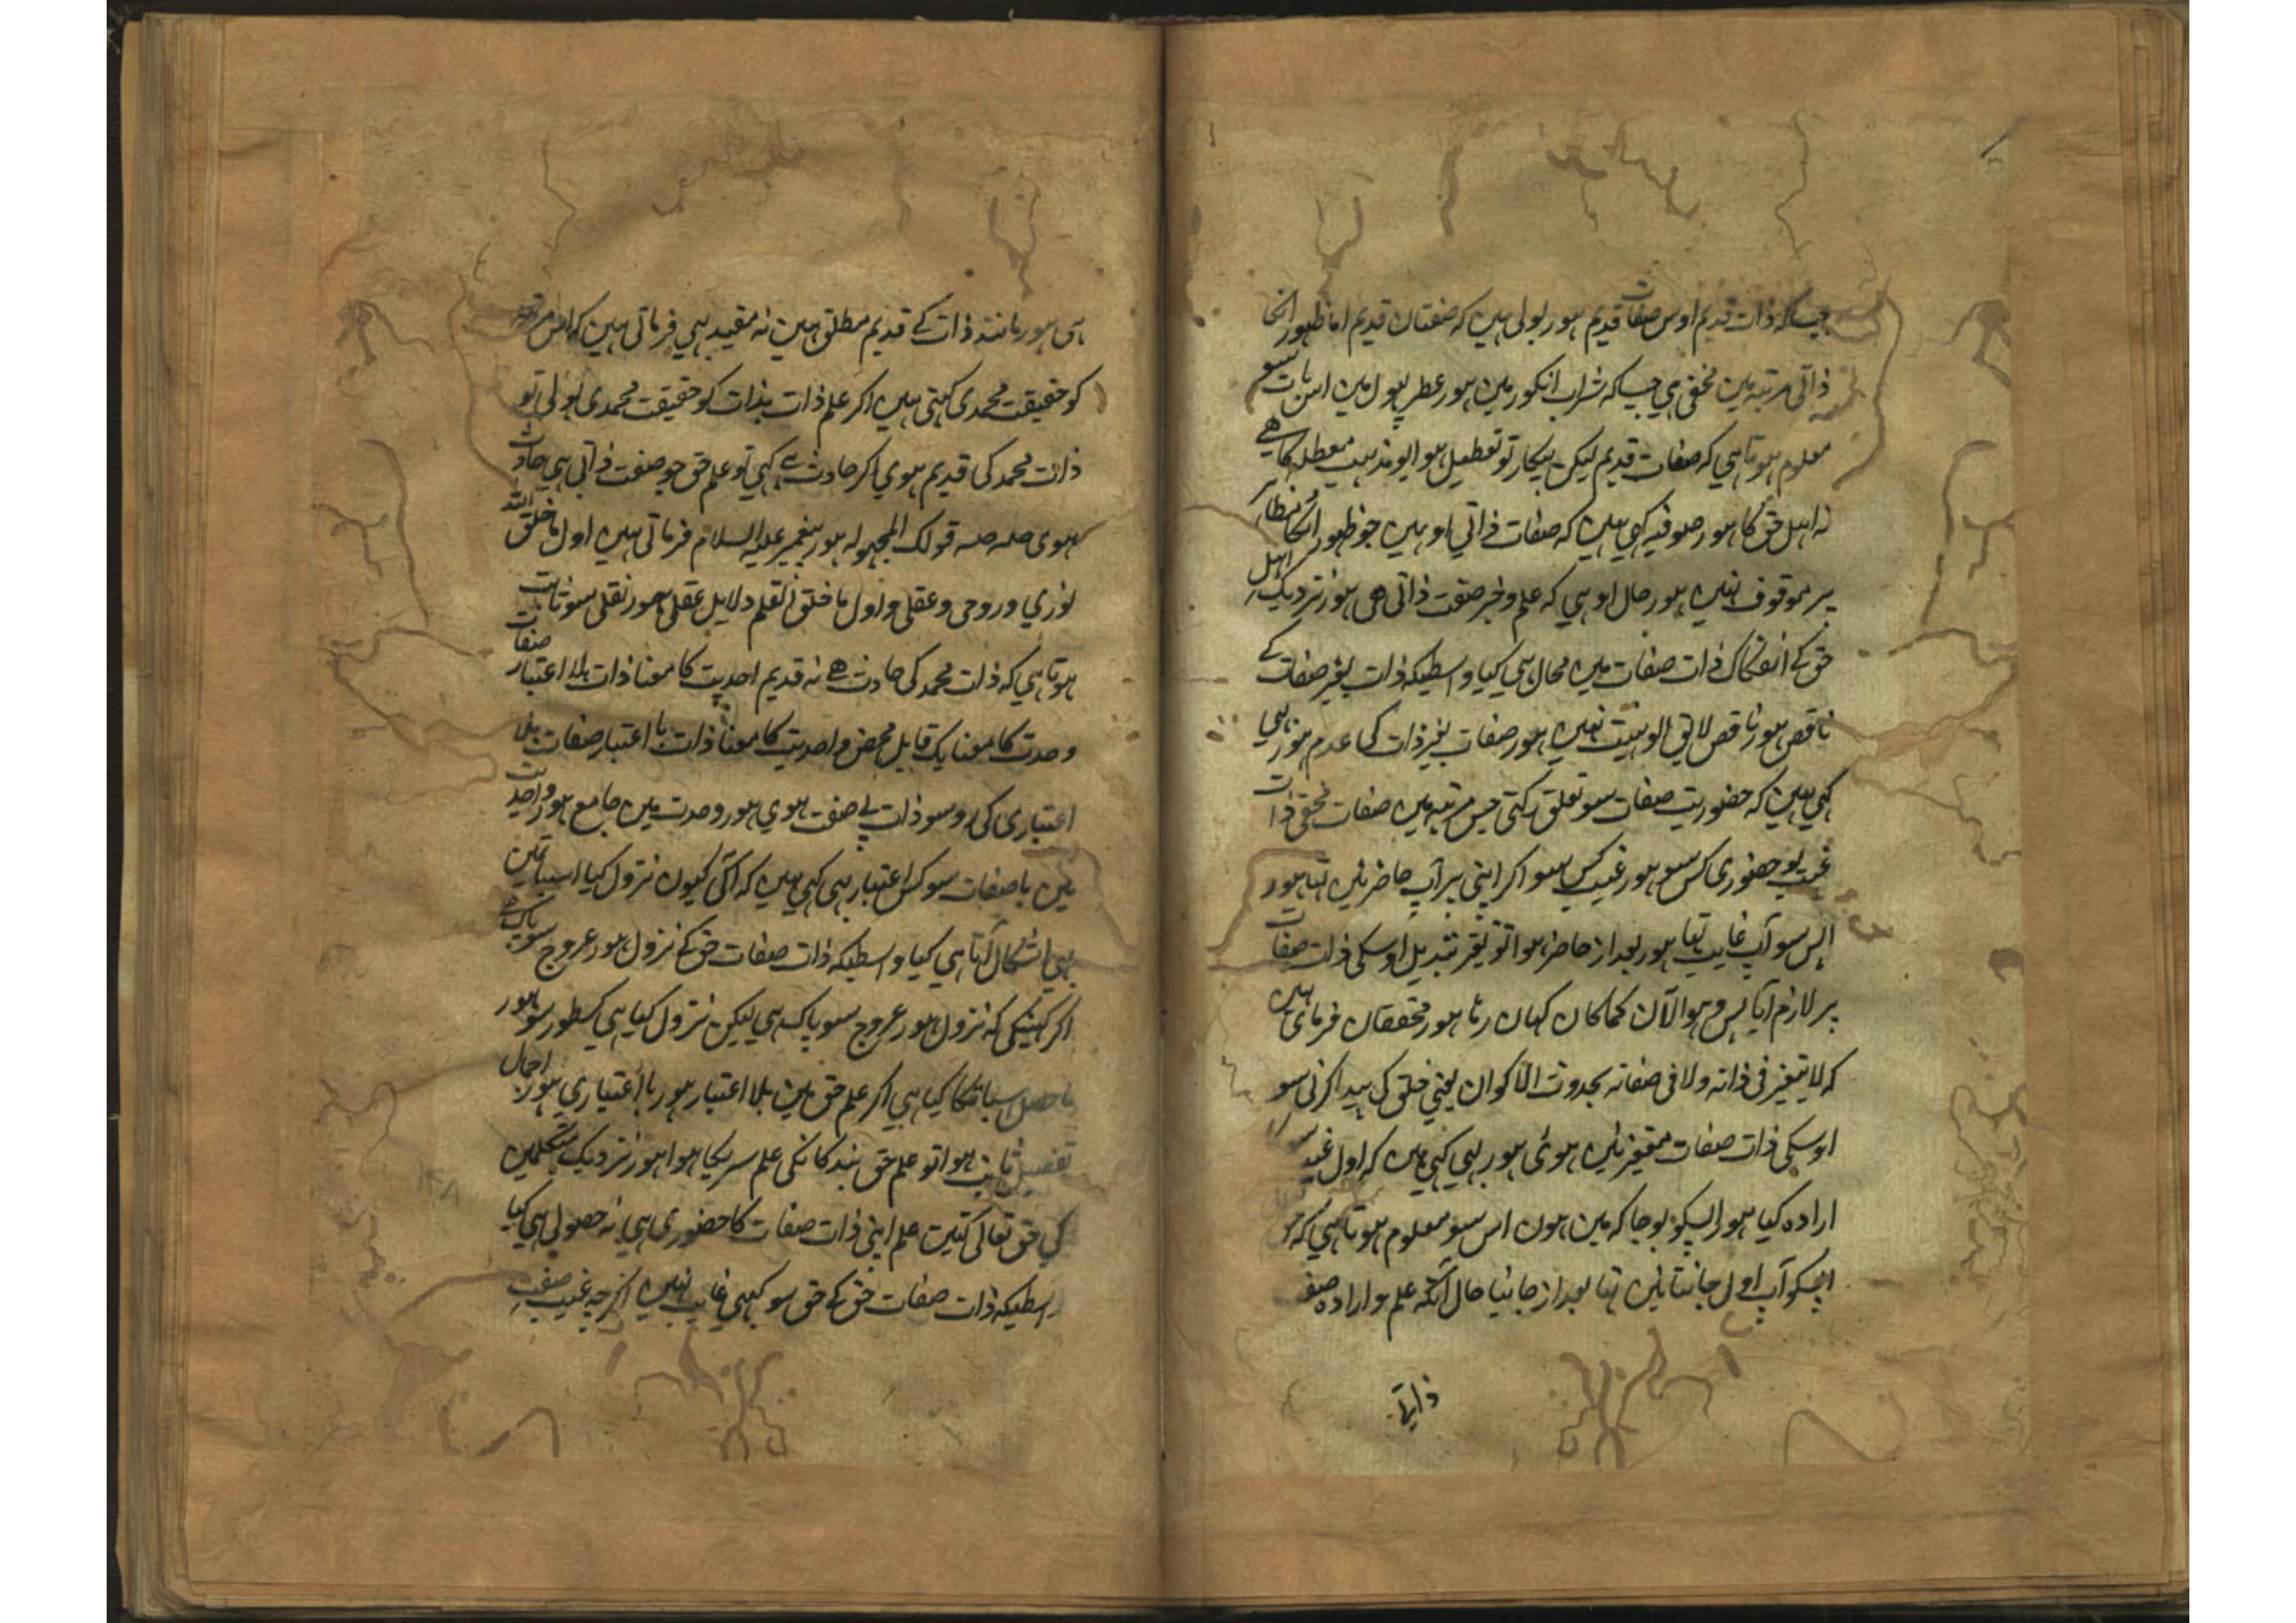 جیسا که ذات قدیم اوس صفات قدیم هور بولی هین که صفتان قدیم اما ظهور انکا
ذاتی مرتبه مین مخفی هی جیسا که شراب انکور مین هور عطر پهول مین اس بات سو
معلوم هوتا هی که صفات قدیم لیکن بیکار تو تعطیل هوا یو مذهب معطله کا هے
نه اهل حق کا هور صوفیه کهی هین که صفات ذاتی او هین جو ظهور انکا مظاهر
پر موقوف نهین هور حال او هی که علم وخبر صفت ذاتی هی هور نزدیک اهل
حق کے انفکاک ذات صفات مین محال هی کیا واسطیکه ذات بغیر صفات کے
ناقص هور ناقص لایق الوهیت نهین هور صفات بغیر ذات کی عدم هور بهی
کهی هین که حضوریت صفات سو تعلق رکهتی جس مرتبه مین صفات مخفی ذات
غیب یو حضوری کس سو هور غیب کس سو اکر اپنی پر آپ حاضر نین تها هور
اپس سو آپ غایب تها هور بعد از حاضر هوا تو تغیر تبدیل اوسکی ذات صفات
پر لازم آیا پس وهو الآن کماکان کهان رها هور محققان فرمای هین
که لا یتغیر فی ذاته ولا فی صفاته بحدوث الاکوان یعنی خلق کی پیدا کرنی سو
اوسکی ذات صفات متغیر نین هوئی هور بهی کهی هین که اول غیب سو
اراده کیا هور اپسکو بوجا که مین هون اس سو معلوم هوتا هی که
اپسکو آپ اول جانتا نین تها بعد از جانیا حال آنکه علم و اراده صفت
ذاتی
هی هور مانند ذات کے قدیم مطلق هین نه مقید بهی فرماتی هین که اس مرتبه
کو حقیقت محمدی کهتی هین اکر علم ذات بذات کو حقیقت محمدی بولی تو
ذات محمد کی قدیم هوی اکر حادث هے کهی تو علم حق جو صفت ذاتی هی حادث
هوی صلہ صلہ قولک المجهوله هور پیغمبر علیه السلام فرماتی هین اول ما خلق الله
نوری و روحی و عقلی و اول ما خلق القلم دلایل عقلی هور نقلی سو ثابت
هوتا هی که ذات محمد کی حادث هے نه قدیم احدیت کا معنا ذات بلا اعتبار صفات
وحدت کا معنا یک قابل محض واحدیت کا معنا ذات با اعتبار صفات بلا
اعتباری کی رو سو ذات بے صفت هوی هور وحدت مین جامع هور واحدیت
مین با صفات سو کس اعتبار بهی کهی هین که آکی کیون نزول کیا اسباتمین
بهی اشکال آتا هی کیا واسطیکه ذات صفات حق کے نزول هور عروج سو پاک هی
اکر کهینکی که نزول هور عروج سو پاک هی لیکن نزول کیا هی کسطور سو هور
ما حصل اسباتکا کیا هی اکر علم حق مین بلا اعتبار هور با اعتباری هور اجمال
تفصیل ثابت هوا تو علم حق بندکانکی علم سریکا هوا هور نزدیک متکلمین
کی حق تعالی کتین علم اپنی ذات صفات کا حضوری هی نه حصولی هی کیا
واسطیکه ذات صفات حق کے حق سو کبهی غایب نهین اکرچه غیب صفت